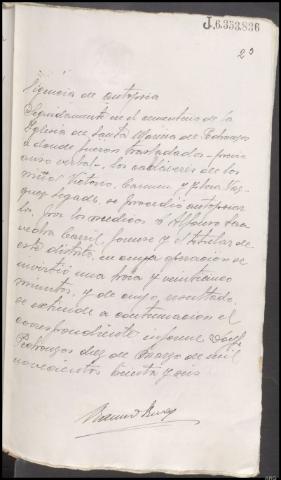 J.6.353.836
23
ligencia de autopsia
Seguidamente en el cementerio de la
Iglesia de Santa Marina de Pedrouzos
a donde fueron trasladados - previo
aviso verbal -, los cadáveres de los
niños Victorio, Carmen y Elena Váz-
quez Legade, se procedió autopsiar
la, por los medicos D Alfonso Saa
vedra Carril, forense y el titular de
este distrito, en cuya operacion se
invirtió una hora y veinticinco
minutos, y de cuyo resultado,
se extiende a continuación el
correspondiente informe Doy fe
Pedrouzos diez de Marzo de mil
novecientos treinta y seis